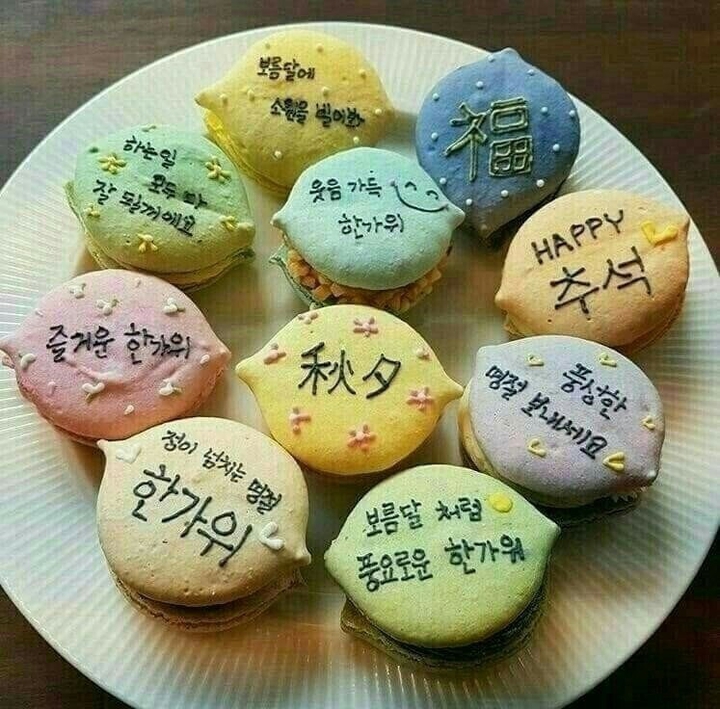 보름달에
소원을 빌어봐
福
하는일
모두 다
잘 될꺼에요
웃음 가득
한가위
HAPPY
추석
즐거운 한가위
秋夕
풍성한
명절 보내세요
정이 넘치는 명절
한가위
보름달 처럼
풍요로운 한가위